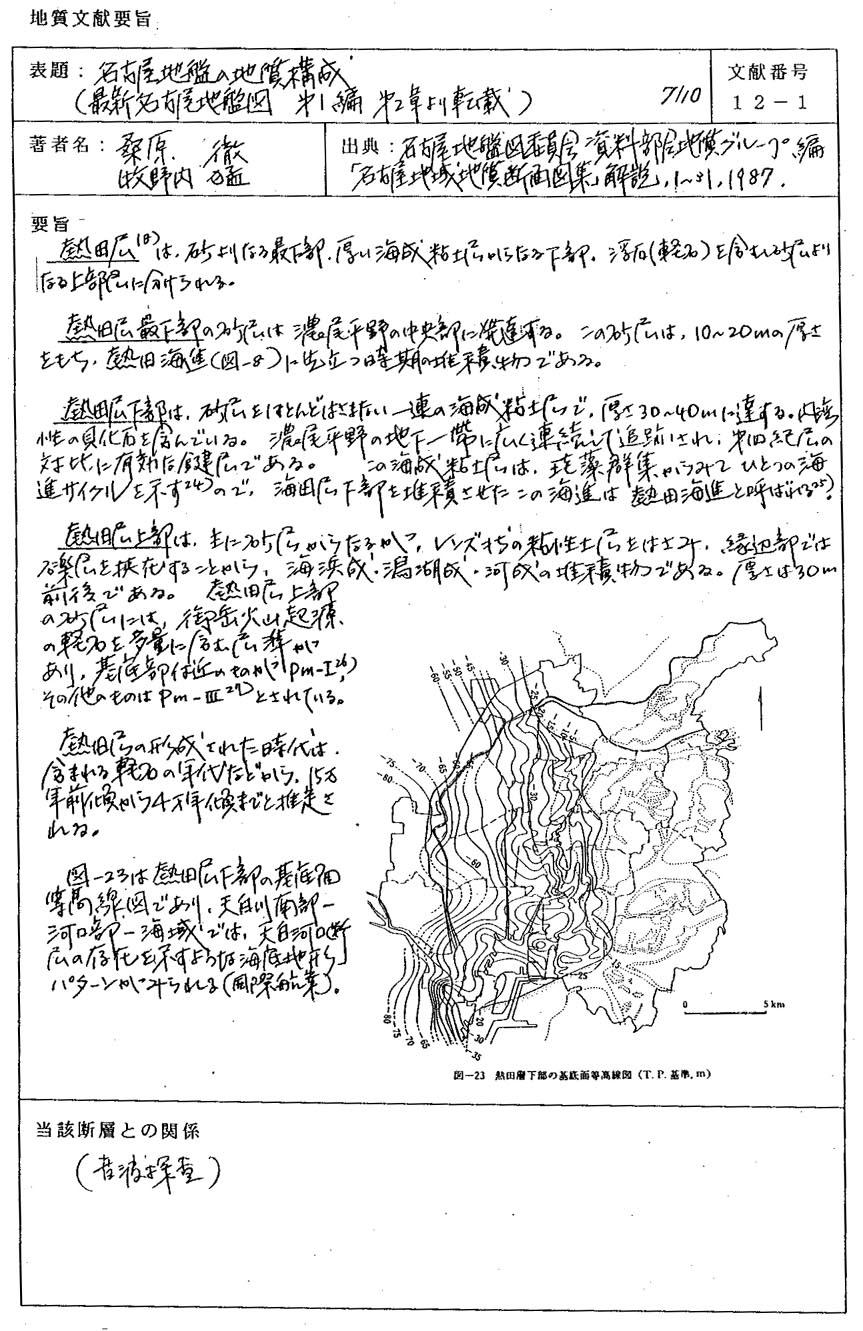 地質文献要旨
表題：名古屋地盤の地質構成
（最新名古屋地盤図 第1編 第2章より転載）
7/10
文献番号
12－1
著者名：桑原 徹
牧野内 猛
出典：名古屋地盤図委員会 資料部会地質グループ編
「名古屋地域地質断面図集」解説，1〜31，1987．
要旨
熱田层18)は，砂よりなる最下部，厚い海成粘土层からなる下部，浮石(軽石)を含む砂层より
なる上部层に分けられる。
熱田层最下部の砂层は濃尾平野の中央部に発達する。この砂层は，10〜20mの厚さ
をもち，熱田海進(図-8)に先立つ時期の堆積物である。
熱田层下部は，砂层をほとんどはさまない一連の海成粘土层で，厚さ30〜40mに達する。内湾
性の貝化石を含んでいる。濃尾平野の地下一帯に広く連続して追跡され，第四紀层の
対比に有効な鍵层である。この海成粘土层は，珪藻群集からみてひとつの海
進サイクルを示す24)ので，海田层下部を堆積させたこの海進は熱田海進と呼ばれる25)。
熱田层上部は，主に砂层からなるが，レンズ状の粘性土层をはさみ，縁辺部では
砂礫层を挟在することから，海浜成・潟湖成・河成の堆積物である。厚さは30m
前後である。熱田层上部
の砂层には，御岳火山起源
の軽石を多量に含む层準が
あり，基底部付近のものがPm-I26)，
その他のものはPm-III27)とされている。
熱田层の形成された時代は，
含まれる軽石の年代などから，15万
年前頃から4万年頃までと推定さ
れる。
図-23は熱田层下部の基底面
等高線図であり，天白川南部－
河口部－海域では，天白河口断
层の存在を示すような海底地形
パターンがみられる(国際航業)。
0 5 km
図－23 熱田層下部の基底面等高線図（T.P.基準，m）
当該断層との関係
（音波探査）